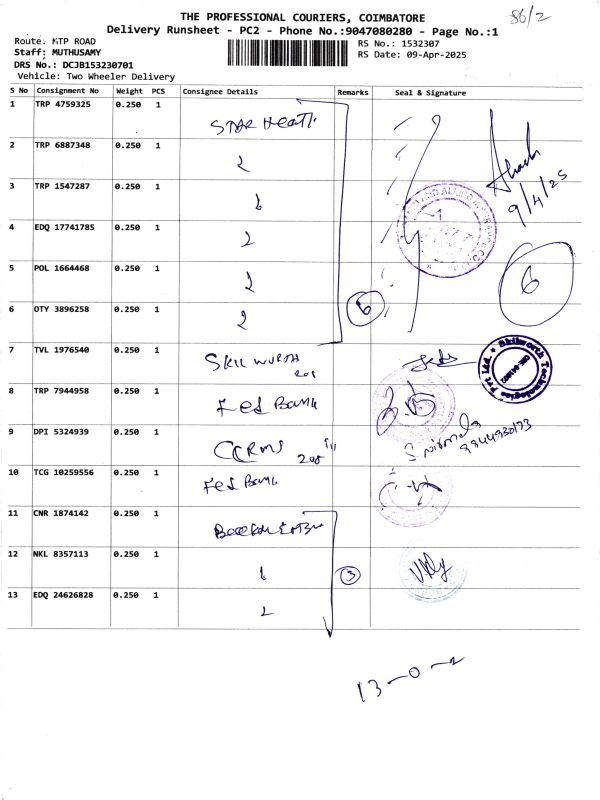 THE PROFESSIONAL COURIERS, COIMBATORE
86/2
Delivery Runsheet - PC2 - Phone No.:9047080280 - Page No.:1
Route: MTP ROAD
RS No.: 1532307
Staff: MUTHUSAMY
RS Date: 09-Apr-2025
DRS No.: DCJB153230701
Vehicle: Two Wheeler Delivery
S No Consignment No Weight PCS Consignee Details Remarks Seal & Signature
1 TRP 4759325 0.250 1
STAR Health
2 TRP 6887348 0.250 1
3 TRP 1547287 0.250 1
9/4/25
4 EDQ 17741785 0.250 1
5 POL 1664468 0.250 1
6
6 OTY 3896258 0.250 1
6
7 TVL 1976540 0.250 1
SKIL WURTH
Skilworth Technologies Pvt Ltd.
8 TRP 7944958 0.250 1
Fed Bank
9 DPI 5324939 0.250 1
CCRMS 208
S Nirmala
9944930173
10 TCG 10259556 0.250 1
Fed Bank
11 CNR 1874142 0.250 1
12 NKL 8357113 0.250 1
3
13 EDQ 24626828 0.250 1
13-0-2